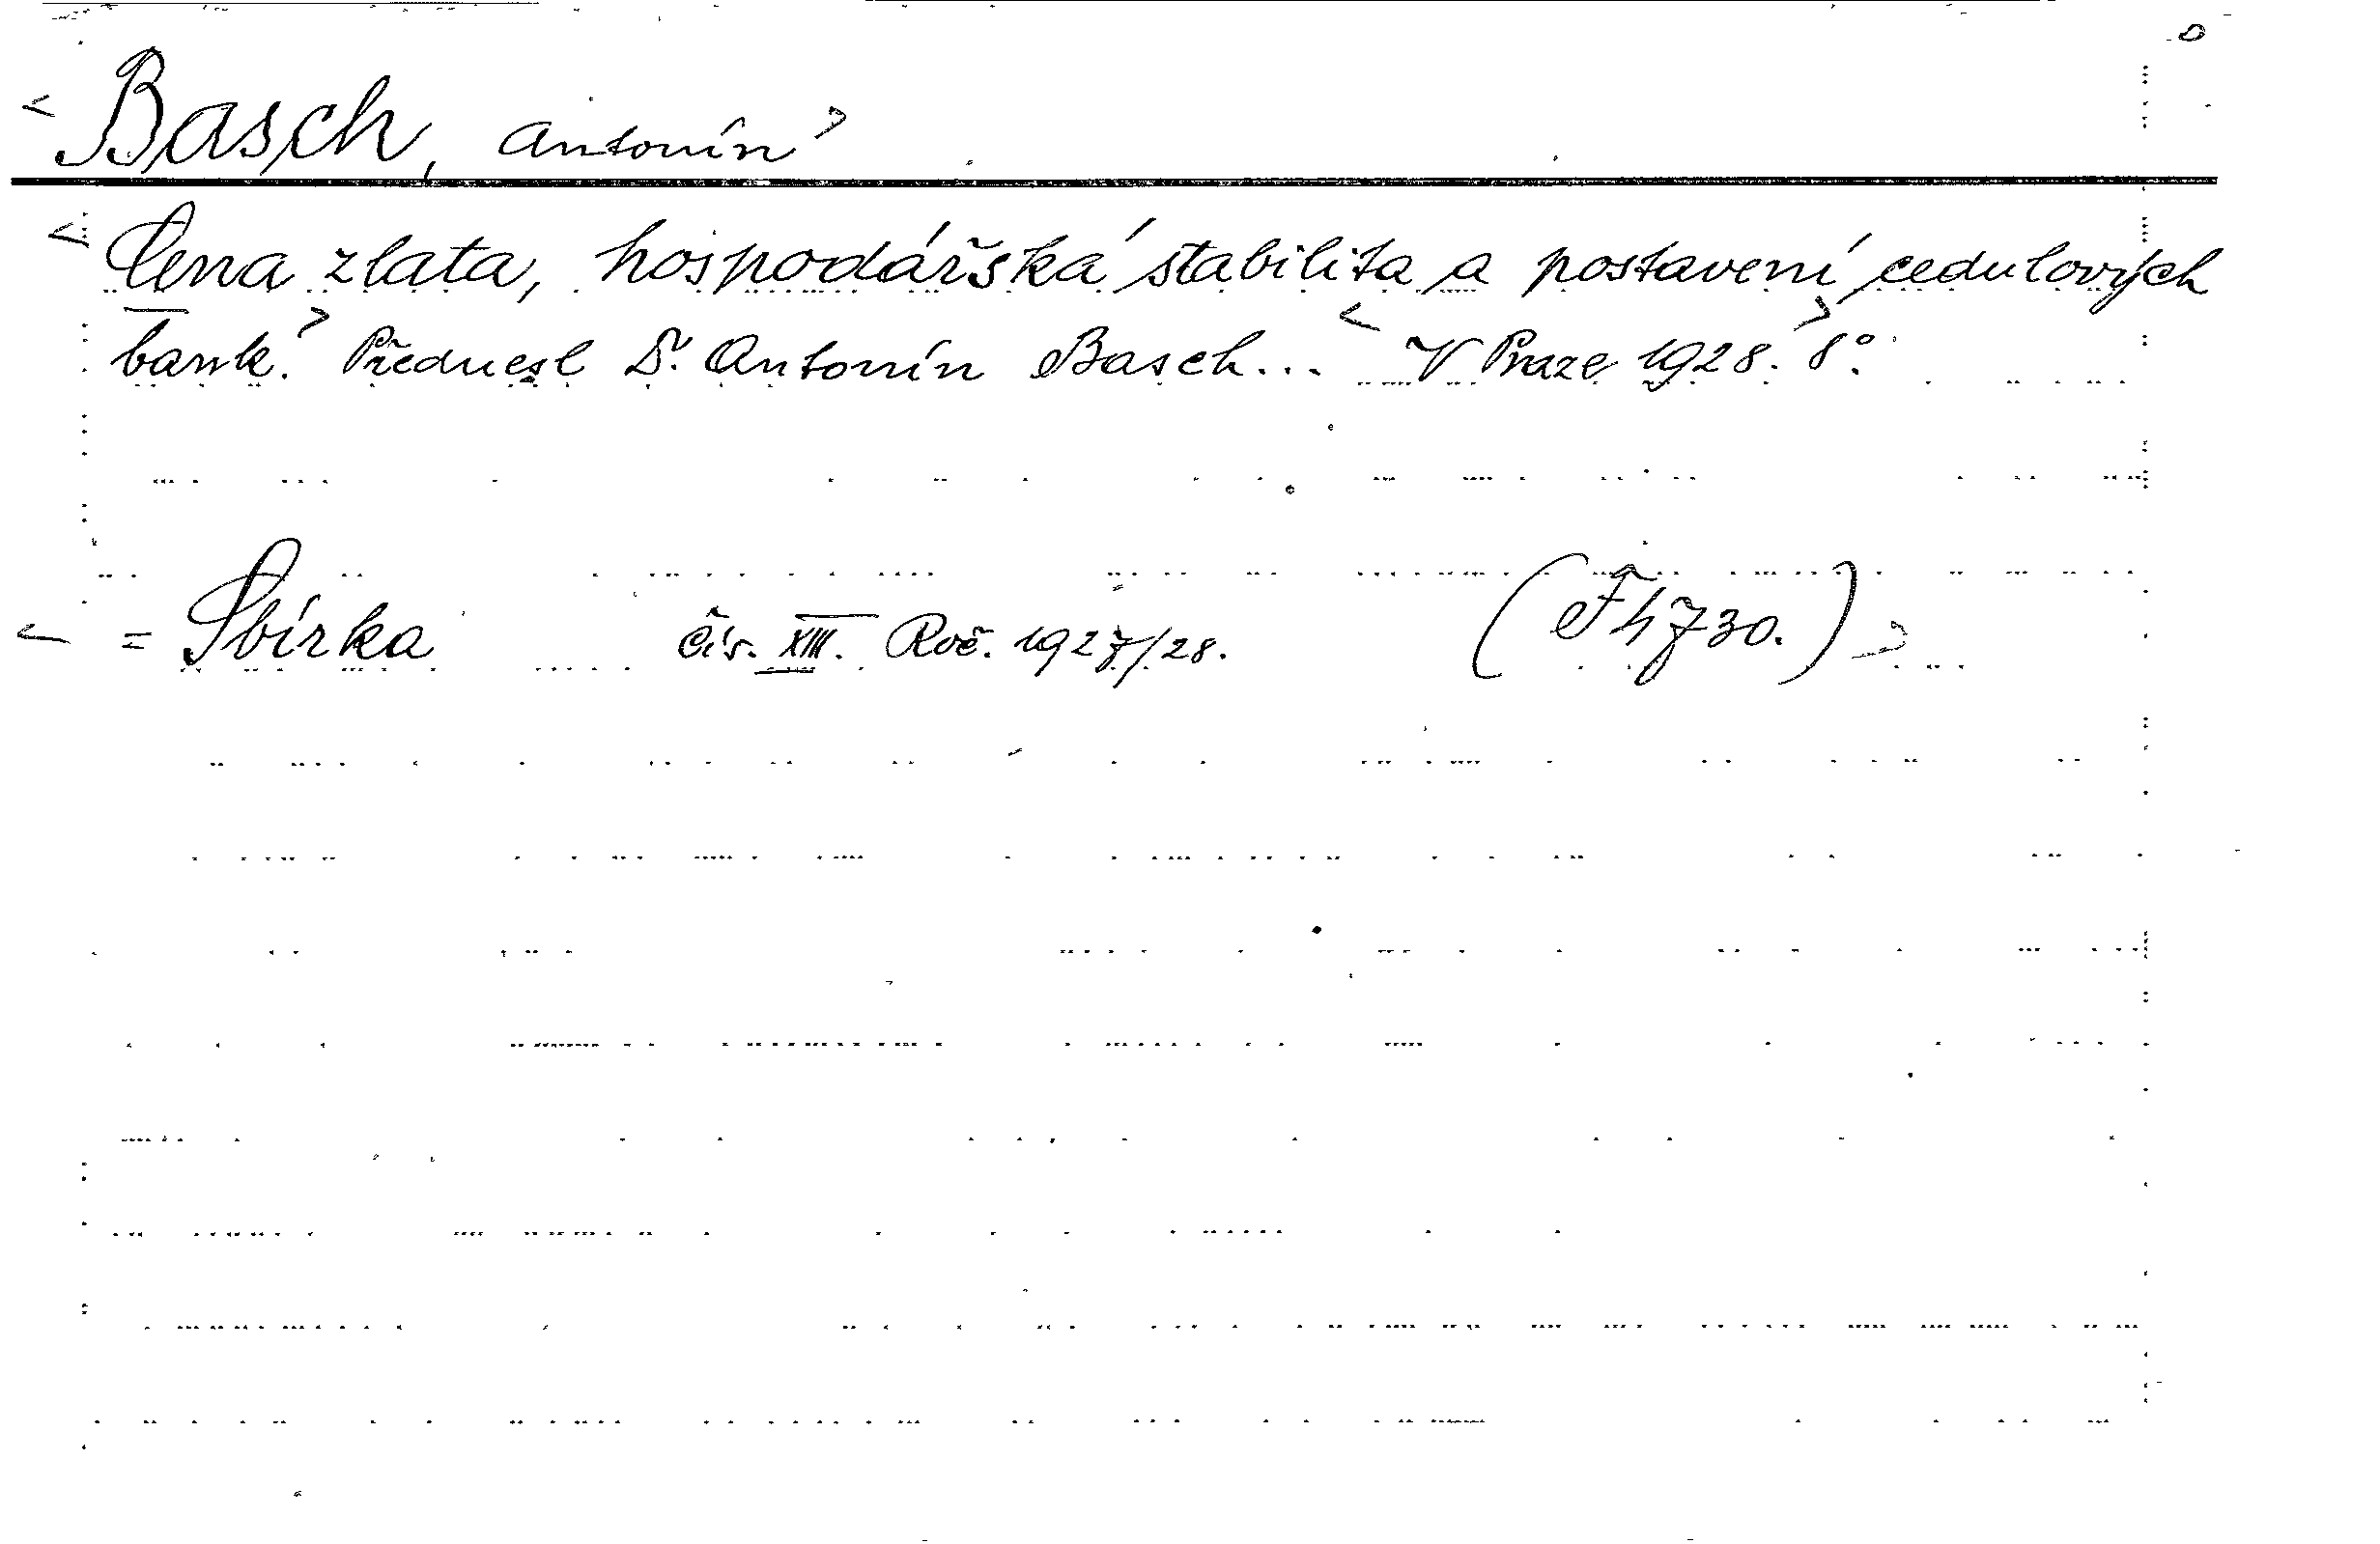 < Basch, Antonín >
< Cena zlata, hospodářská stabilita a postavení cedulových
bank. > Přednesl Dr. Antonín Basch... < V Praze 1928. > 8°.
< = Sbírka čís. XIII. Roč. 1927/28. (F 4730.) >